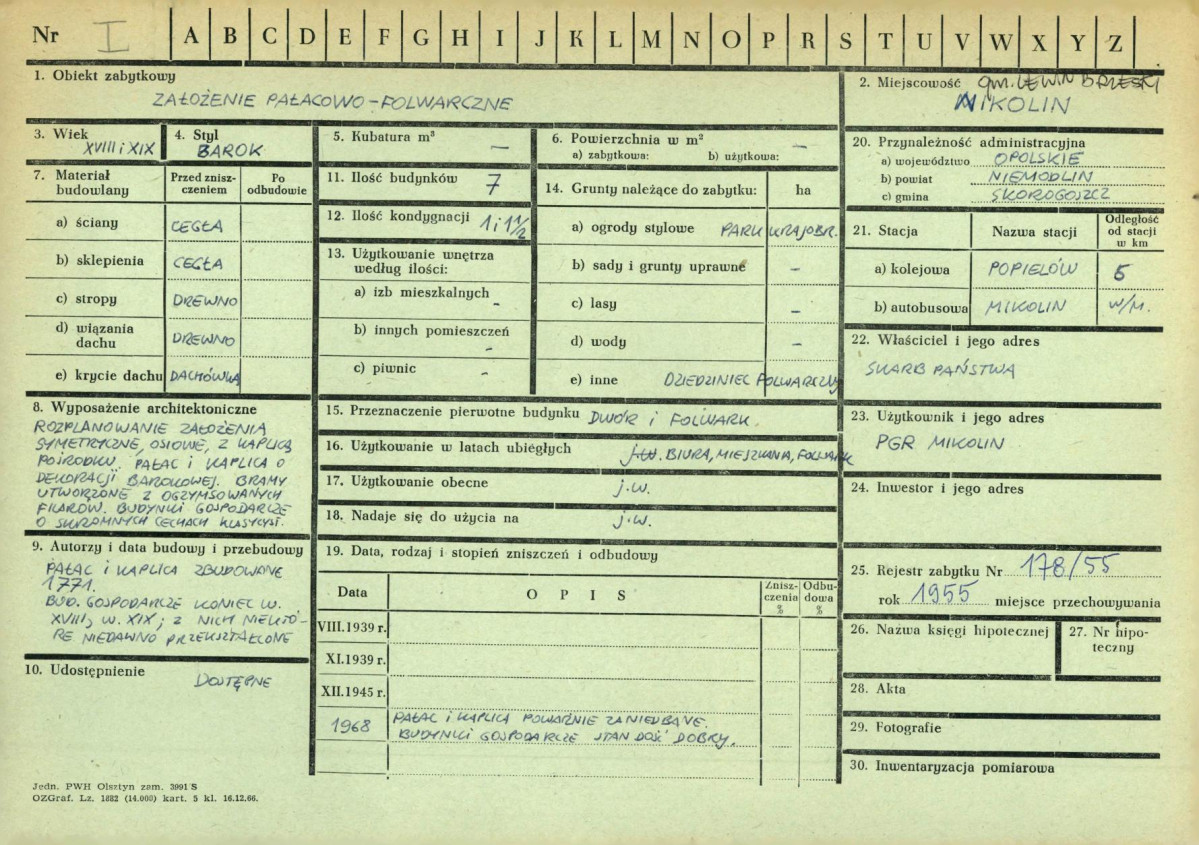 Nr I A B C D E F G H I J K L M N O P R S T U V W X Y Z
1. Obiekt zabytkowy
ZAŁOŻENIE PAŁACOWO-FOLWARCZNE
2. Miejscowość gm. LEWIN BRZESKI
MIKOLIN
3. Wiek
XVIII i XIX
4. Styl
BAROK
5. Kubatura m³
—
6. Powierzchnia w m²
a) zabytkowa: b) użytkowa: —
7. Materiał budowlany
Przed zniszczeniem
Po odbudowie
a) ściany CEGŁA
b) sklepienia CEGŁA
c) stropy DREWNO
d) wiązania dachu DREWNO
e) krycie dachu DACHÓWKA
8. Wyposażenie architektoniczne
ROZPLANOWANIE ZAŁOŻENIA
SYMETRYCZNE, OSIOWE, Z KAPLICĄ
POŚRODKU. PAŁAC I KAPLICA O
DEKORACJI BAROKOWEJ. BRAMY
UTWORZONE Z OGZYMSOWANYCH
FILARÓW. BUDYNKI GOSPODARCZE
O SKROMNYCH CECHACH KLASYCYST.
9. Autorzy i data budowy i przebudowy
PAŁAC I KAPLICA ZBUDOWANE
1771.
BUD. GOSPODARCZE KONIEC W.
XVIII, W. XIX; Z NICH NIEKTÓ-
RE NIEDAWNO PRZEKSZTAŁCONE
10. Udostępnienie
DOSTĘPNE
11. Ilość budynków 7
12. Ilość kondygnacji 1 i 1 1/2
13. Użytkowanie wnętrza
według ilości:
a) izb mieszkalnych -
b) innych pomieszczeń -
c) piwnic -
14. Grunty należące do zabytku: ha
a) ogrody stylowe PARK KRAJOBR.
b) sady i grunty uprawne -
c) lasy -
d) wody -
e) inne DZIEDZINIEC FOLWARCZNY
15. Przeznaczenie pierwotne budynku DWÓR I FOLWARK.
16. Użytkowanie w latach ubiegłych j.w. BIURA, MIESZKANIA, FOLWARK
17. Użytkowanie obecne j.w.
18. Nadaje się do użycia na j.w.
19. Data, rodzaj i stopień zniszczeń i odbudowy
Data OPIS Zniszczenia % Odbudowa %
VIII.1939 r.
XI.1939 r.
XII.1945 r.
1968 PAŁAC I KAPLICA POWAŻNIE ZANIEDBANE.
BUDYNKI GOSPODARCZE STAN DOŚĆ DOBRY.
20. Przynależność administracyjna
a) województwo OPOLSKIE
b) powiat NIEMODLIN
c) gmina SKOROGOSZCZ
21. Stacja Nazwa stacji Odległość od stacji w km
a) kolejowa POPIELÓW 5
b) autobusowa MIKOLIN W/M.
22. Właściciel i jego adres
SKARB PAŃSTWA
23. Użytkownik i jego adres
PGR MIKOLIN
24. Inwestor i jego adres
25. Rejestr zabytku Nr 178/55
rok 1955 miejsce przechowywania
26. Nazwa księgi hipotecznej
27. Nr hipo-
teczny
28. Akta
29. Fotografie
30. Inwentaryzacja pomiarowa
Jedn. PWH Olsztyn zam. 3991 S
OZGraf. Lz. 1882 (14.000) kart. 5 kl. 16.12.66.